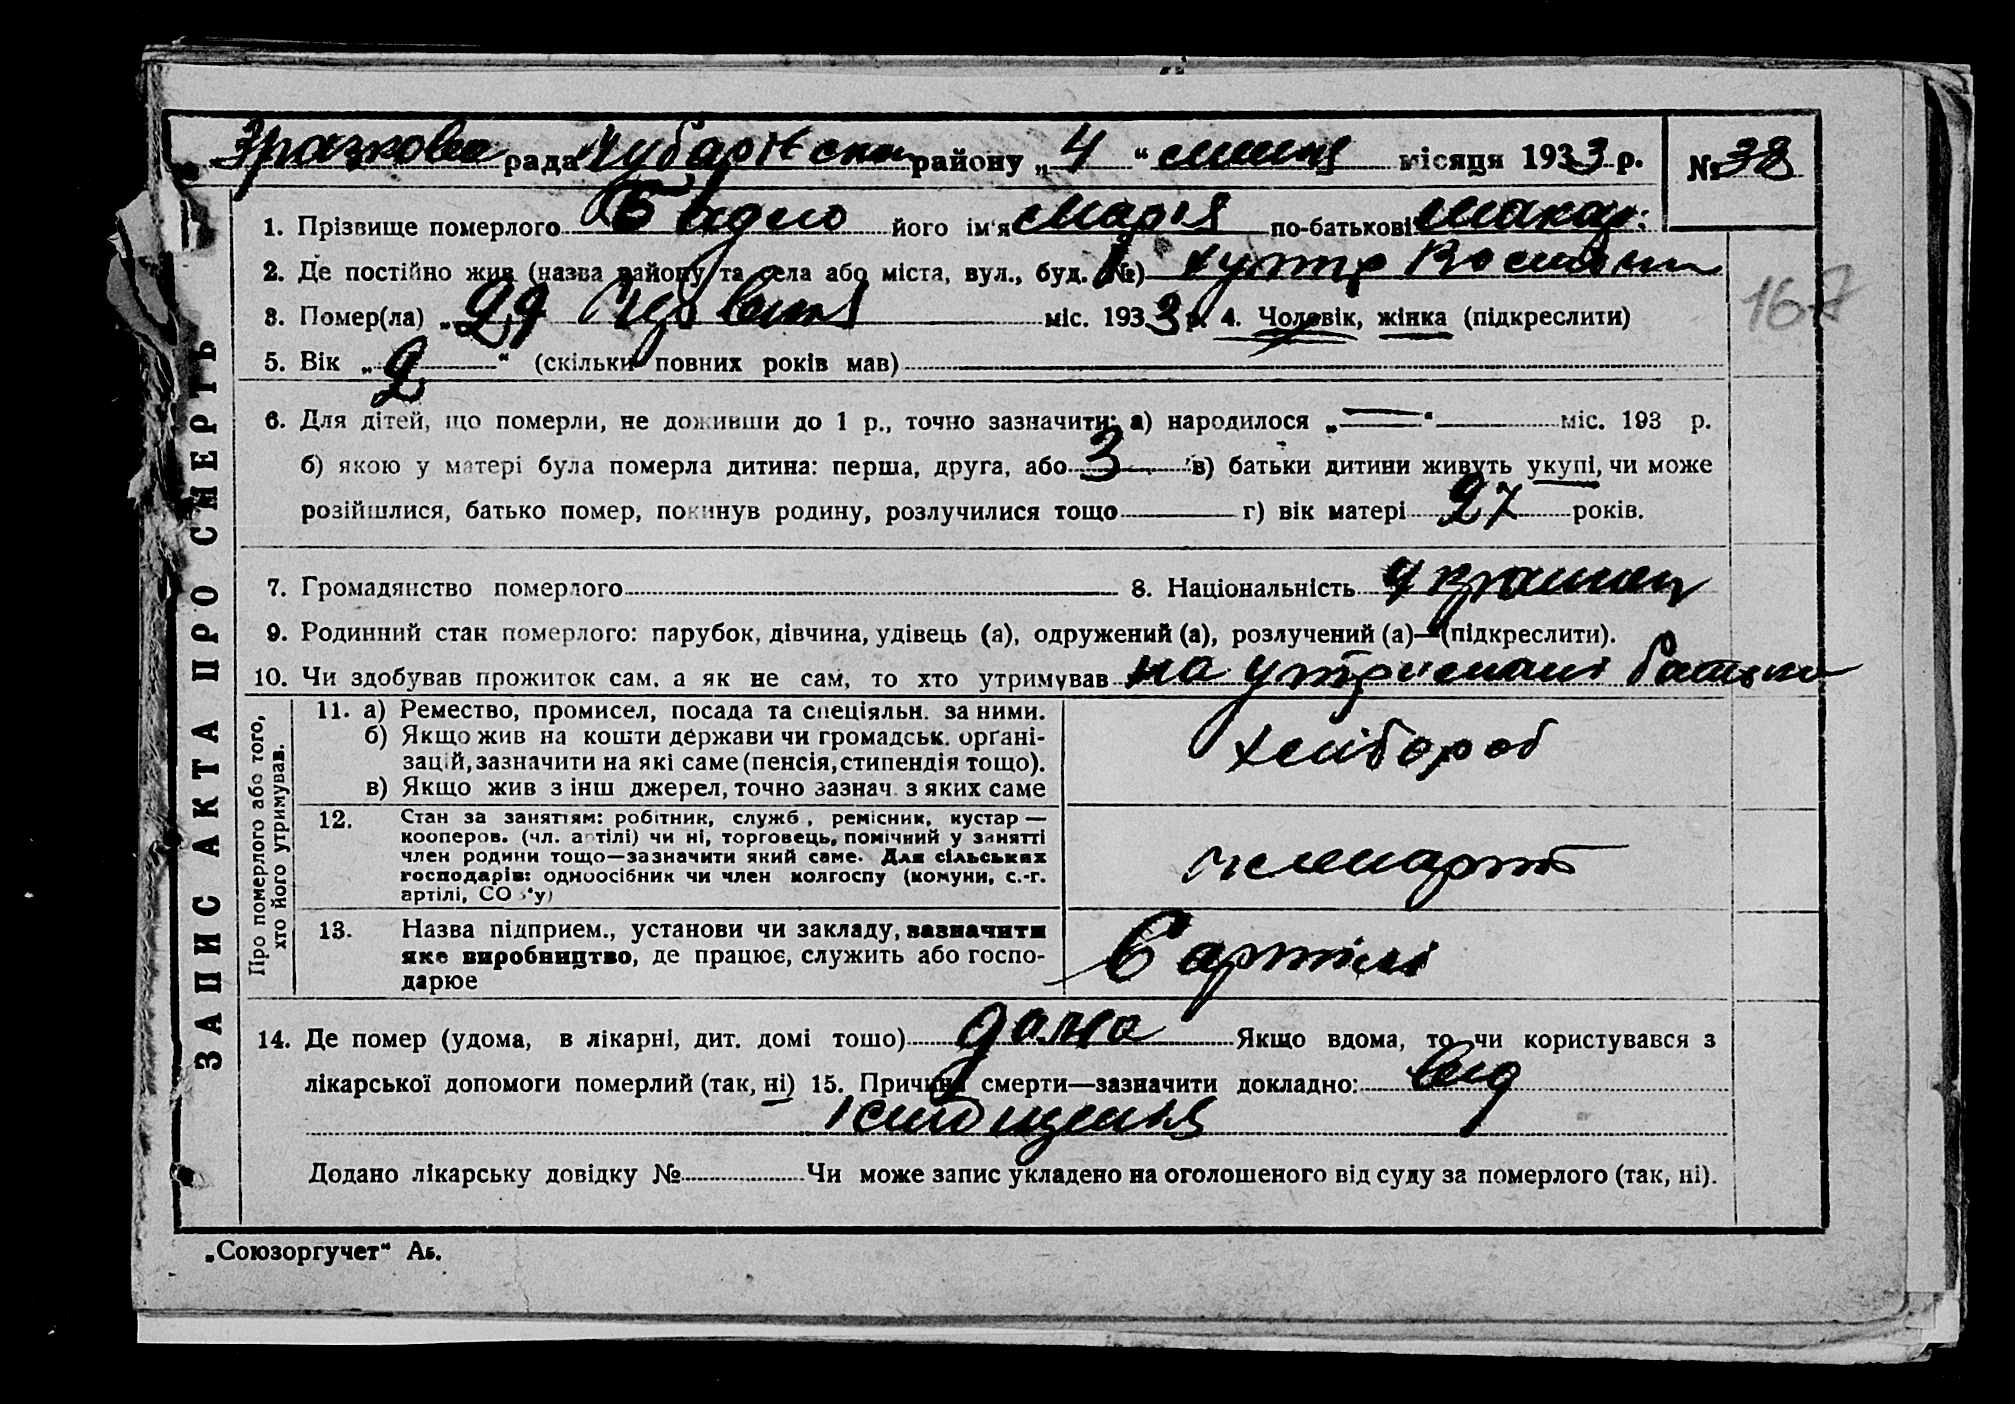 Зразкова рада Чубарівськ району „4“ липня місяця 1933 р. № 38
1. Прізвище померлого Бидло його ім'я Марія по-батькові Макар.
2. Де постійно жив (назва району та села або міста, вул., буд. №) хутір
3. Помер(ла) „29 Червня міс. 1933 р. 4. Чоловік, жінка (підкреслити)
167
5. Вік „2“ (скільки повних років мав)
6. Для дітей, що померли, не доживши до 1 р., точно зазначити: а) народилося „—“ міс. 193 р.
б) якою у матері була померла дитина: перша, друга, або 3 в) батьки дитини живуть укупі, чи може
розійшлися, батько помер, покинув родину, розлучилися тощо г) вік матері 27 років.
7. Громадянство померлого 8. Національність Українец
9. Родинний стан померлого: парубок, дівчина, удівець (а), одружений (а), розлучений (а)—(підкреслити).
10. Чи здобував прожиток сам, а як не сам, то хто утримував на утриманні батька
ЗАПИС АКТА ПРО СМЕРТЬ
Про померлого або того, хто його утримував.
11. а) Ремество, промисел, посада та спеціяльн. за ними.
б) Якщо жив на кошти держави чи громадськ. органі-
зацій, зазначити на які саме (пенсія, стипендія тощо).
в) Якщо жив з інш джерел, точно зазнач. з яких саме
Хлібороб
12. Стан за заняттям: робітник, служб., ремісник, кустар—
кооперов. (чл. артілі) чи ні, торговець, помічний у занятті
член родини тощо—зазначити який саме. Для сільських
господарів: одноосібник чи член колгоспу (комуни, с.-г.
артілі, СОЗ'у)
член арт
13. Назва підприєм., установи чи закладу, зазначити
яке виробництво, де працює, служить або госпо-
дарює
В артілі
14. Де помер (удома, в лікарні, дит. домі тошо) дома Якщо вдома, то чи користувався з
лікарської допомоги померлий (так, ні) 15. Причина смерти—зазначити докладно: від
истощення
Додано лікарську довідку № Чи може запис укладено на оголошеного від суду за померлого (так, ні).
„Союзоргучет“ Аб.